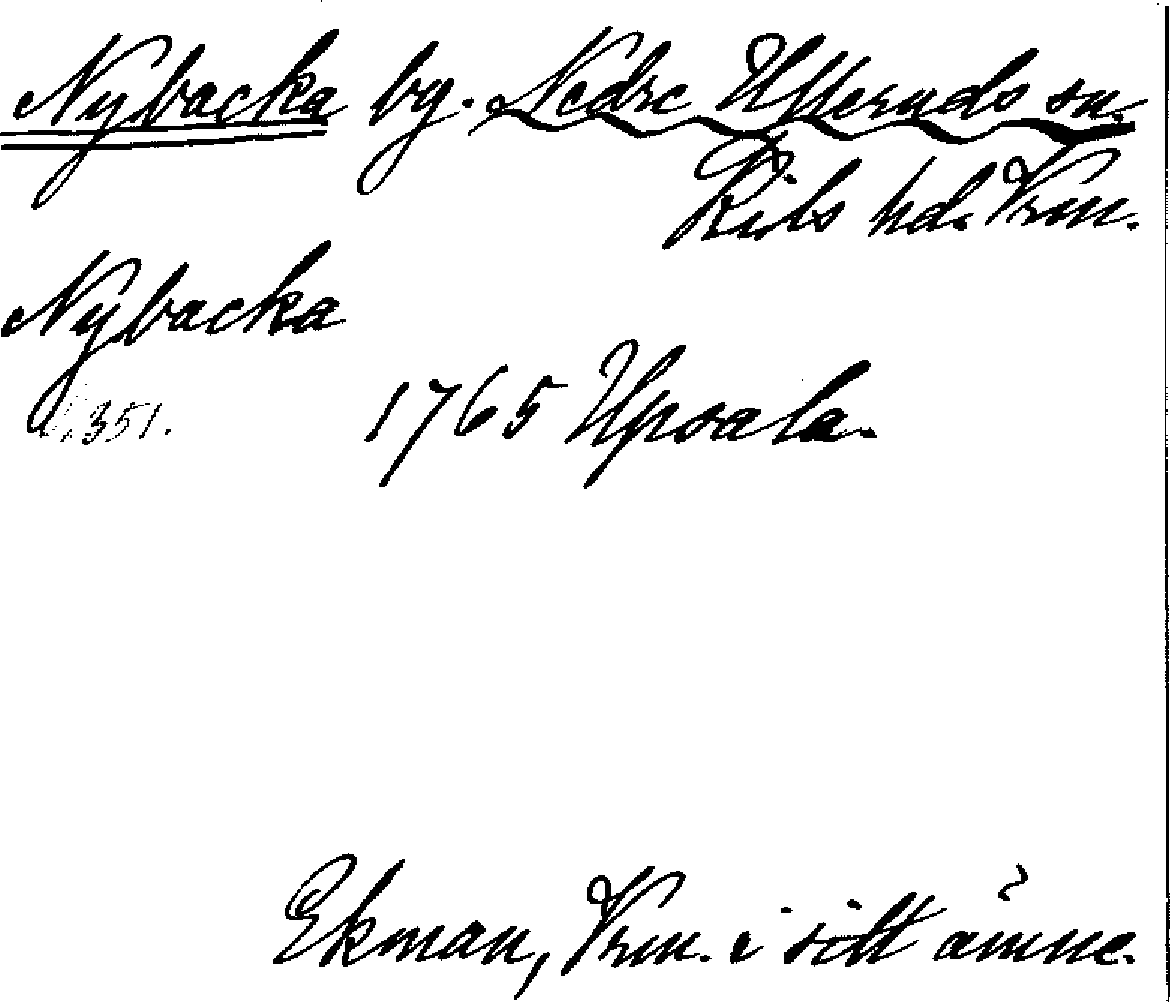 Nybacka by. Nedre Ulleruds sn.
Kils hd. Vrm.
Nybacka
s. 351.
1765 Upsala.
Ekman, Vrm. i sitt ämne.